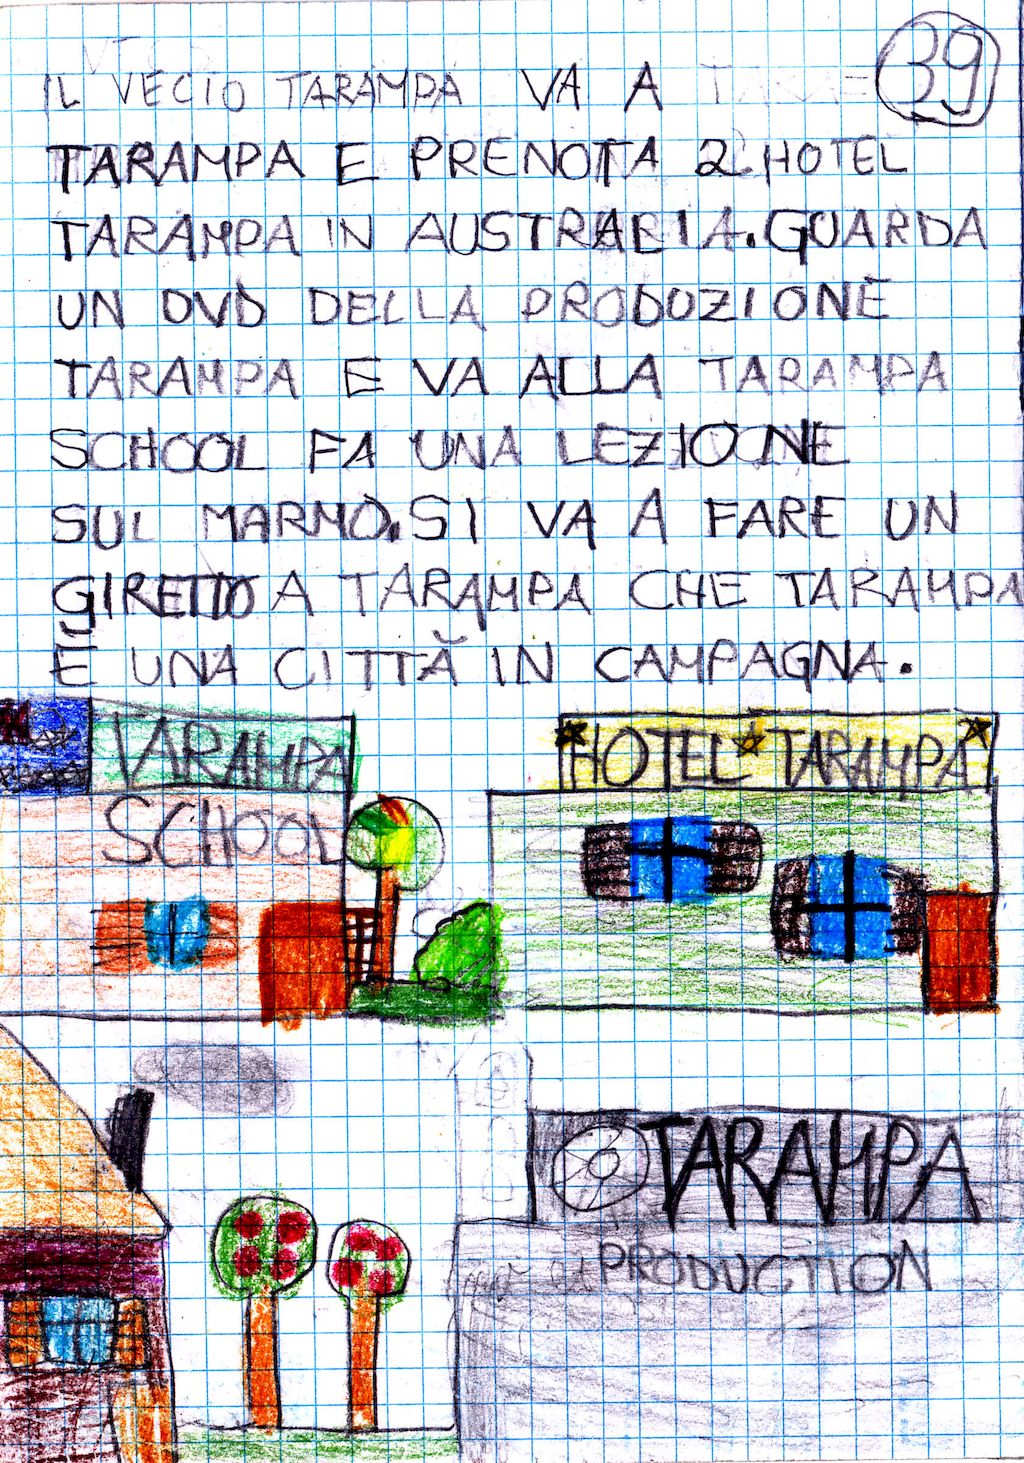 39
IL VECIO TARAMPA VA A
TARAMPA E PRENOTA 2 HOTEL
TARAMPA IN AUSTRALIA. GUARDA
UN DVD DELLA PRODUZIONE
TARAMPA E VA ALLA TARAMPA
SCHOOL FA UNA LEZIONE
SUL MARMO. SI VA A FARE UN
GIRETTO A TARAMPA CHE TARAMPA
È UNA CITTÀ IN CAMPAGNA.
TARAMPA
SCHOOL
HOTEL TARAMPA
TARAMPA
PRODUCTION